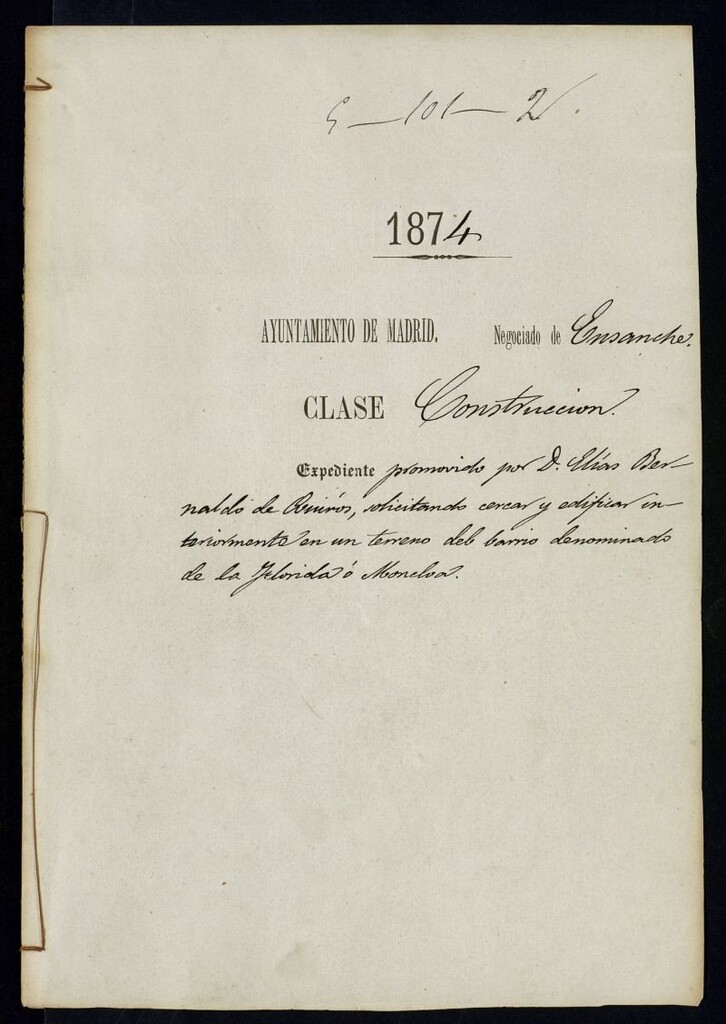 5-101-2.
1874
AYUNTAMIENTO DE MADRID. Negociado de Ensanche.
CLASE Construccion.
Expediente promovido por D. Elías Ber-
naldo de Quirós, solicitando cercar y edificar in-
teriormente en un terreno del barrio denominado
de la Florida ó Moncloa.